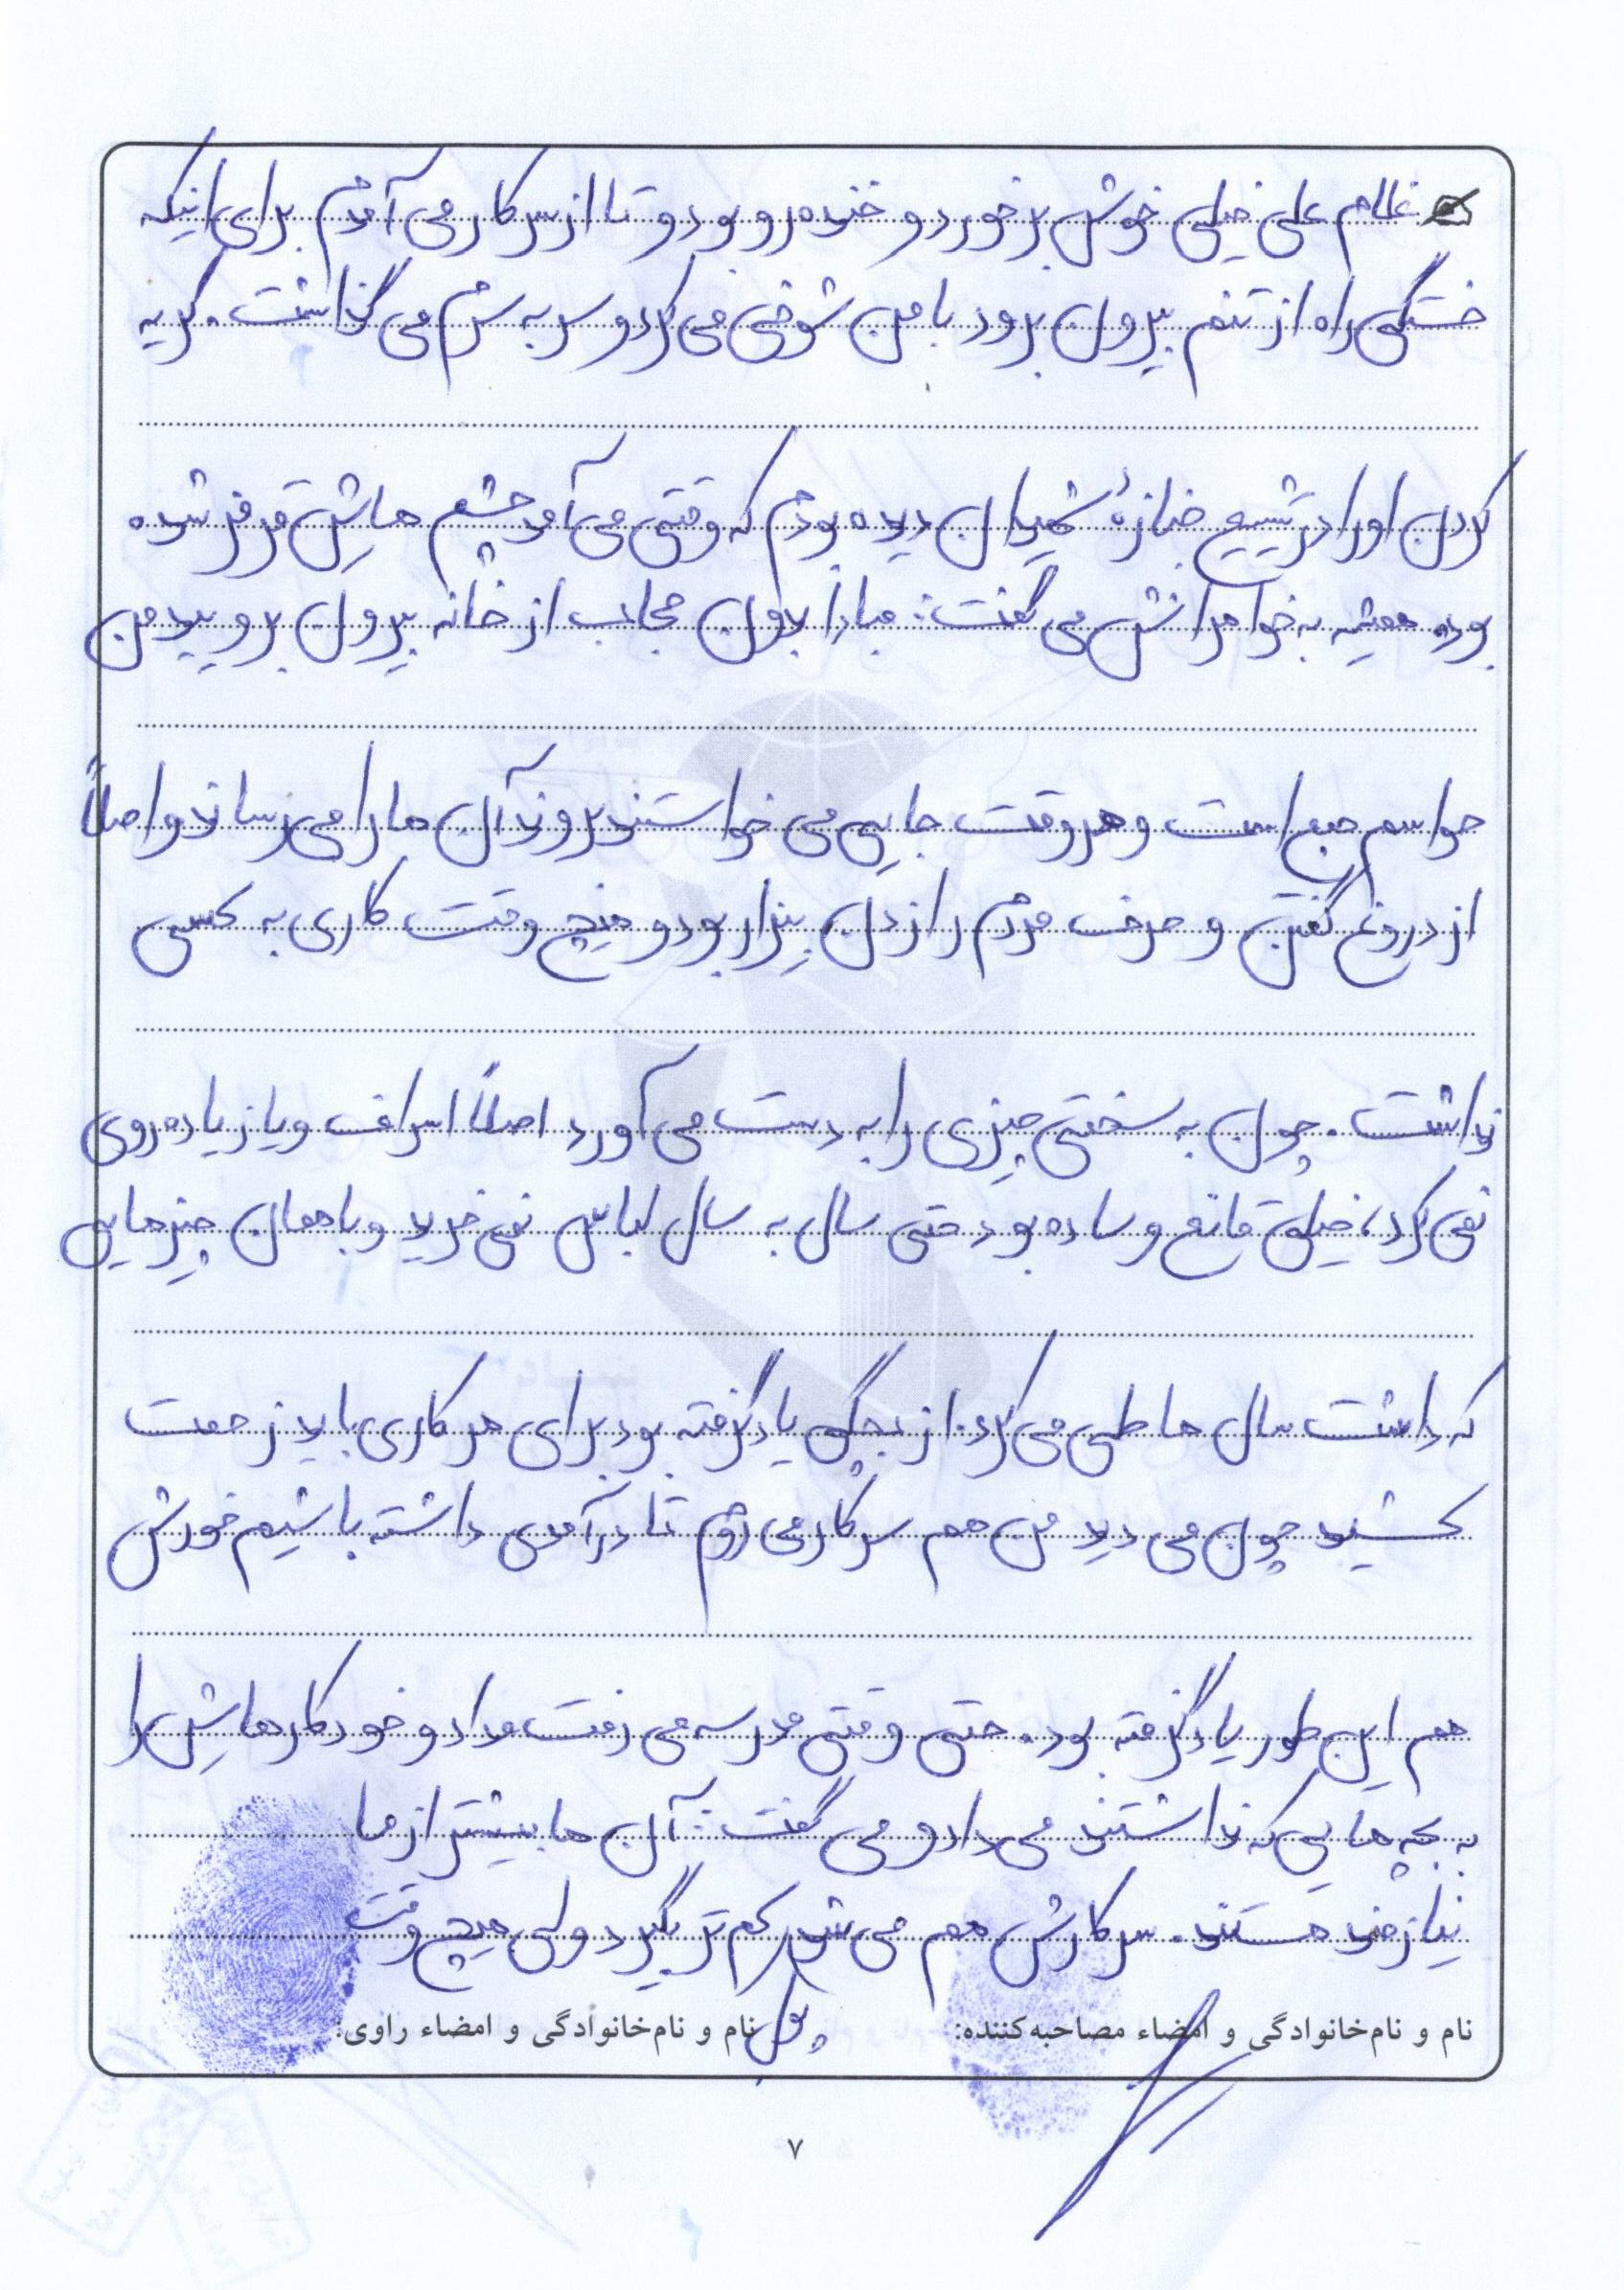 غلام علی خیلی خوش برخورد و خنده رو بود و تا از سر کار می آمدم برای اینکه
خستگی راه از تنم بیرون برود با من شوخی می کرد و سر به سرم می گذاشت. گریه
کردن او را در تشییع جنازهٔ شهیدان دیده بودم که وقتی می آمد چشم هایش قرمز شده
بود. همیشه به خواهرانش می گفت: مبادا بدون حجاب از خانه بیرون بروید من
حواسم جمع است و هر وقت جایی می خواستند بروند آن ها را می رساند و اصلاً
از دروغ گفتن و حرف مردم را زدن بیزار بود و هیچ وقت کاری به کسی
نداشت. چون به سختی چیزی را به دست می آورد اصلاً اسراف و یا زیاده روی
نمی کرد، خیلی قانع و ساده بود حتی سال به سال لباس نمی خرید و با همان چیزهایی
که داشت سال ها طی می کرد. از بچگی یاد گرفته بود برای هر کاری باید زحمت
کشید چون می دید من هم سر کار می روم تا درآمدی داشته باشیم خودش
هم این طور یاد گرفته بود. حتی وقتی مدرسه می رفت مداد و خودکارهایش را
به بچه هایی که نداشتند می داد و می گفت: آن ها بیشتر از ما
نیازمند هستند. سر کارش هم می شد پول کم تر بگیرد ولی هیچ وقت
نام و نام‌خانوادگی و امضاء مصاحبه‌کننده: نام و نام‌خانوادگی و امضاء راوی:
۷